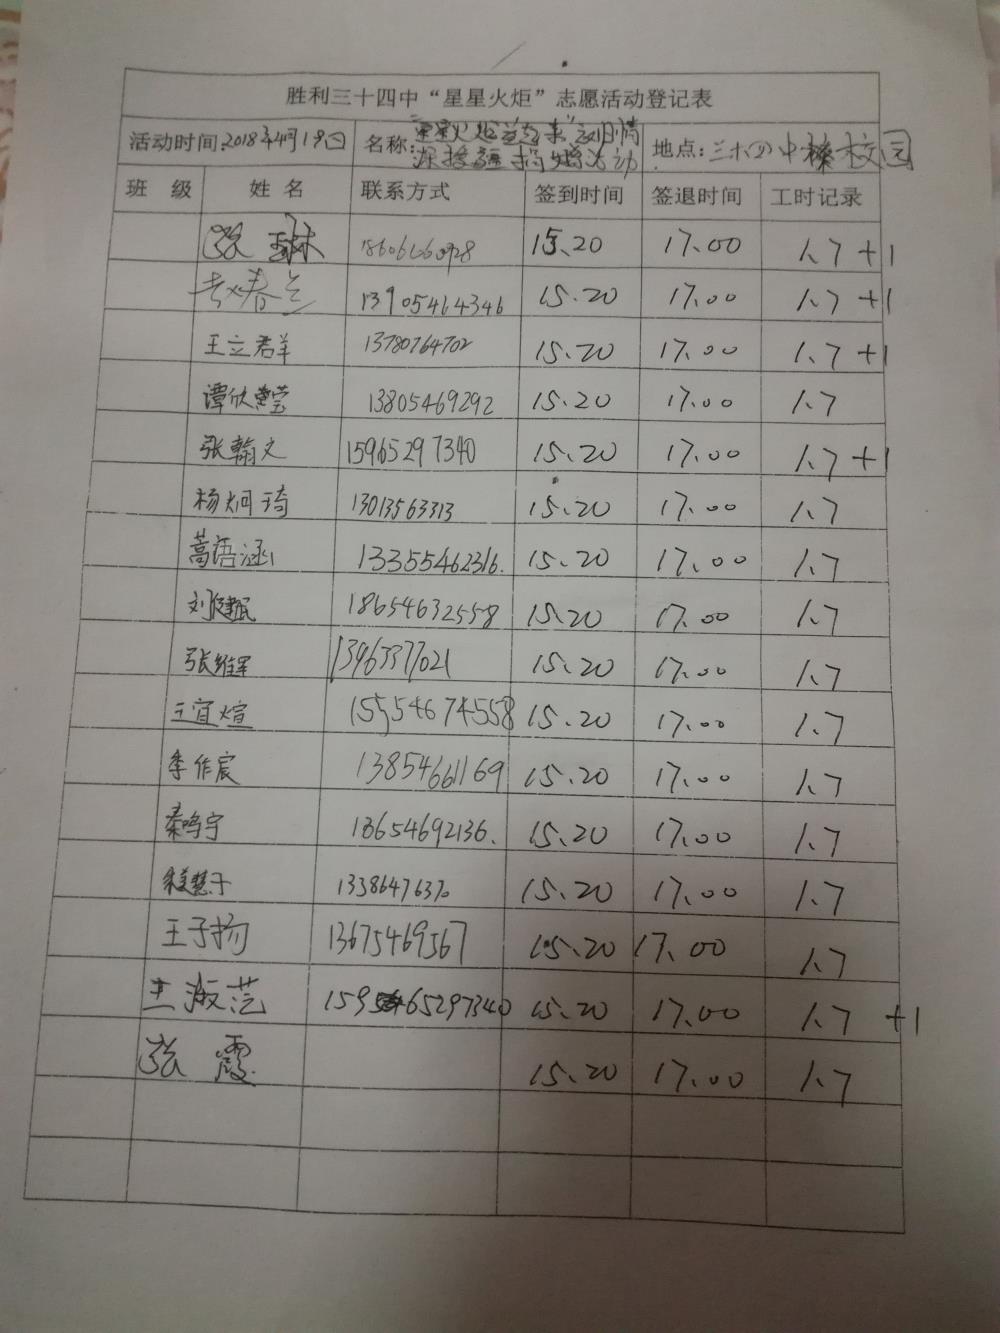 胜利三十四中“星星火炬”志愿活动登记表
活动时间:2018年4月19日 名称: 星星火炬 情 地点:三十四中 校园
捐赠活动
班 级 姓 名 联系方式 签到时间 签退时间 工时记录
张 琳 15.20 17.00 1.7+1
春兰 13905464346 15.20 17.00 1.7+1
王立群 13780764702 15.20 17.00 1.7+1
谭欣莹 13805469292 15.20 17.00 1.7
张翰文 15965297340 15.20 17.00 1.7+1
杨炯琦 13013563313 15.20 17.00 1.7
蒿语涵 13355462316. 15.20 17.00 1.7
刘 18654632558 15.20 17.00 1.7
张维军 13963377021 15.20 17.00 1.7
王宜煊 15554674558 15.20 17.00 1.7
李作宸 13854661169 15.20 17.00 1.7
秦鸣宇 13654692136. 15.20 17.00 1.7
慧子 13386476370 15.20 17.00 1.7
王子扬 13675469567 15.20 17.00 1.7
王淑范 15.20 17.00 1.7+1
张 霞 15.20 17.00 1.7